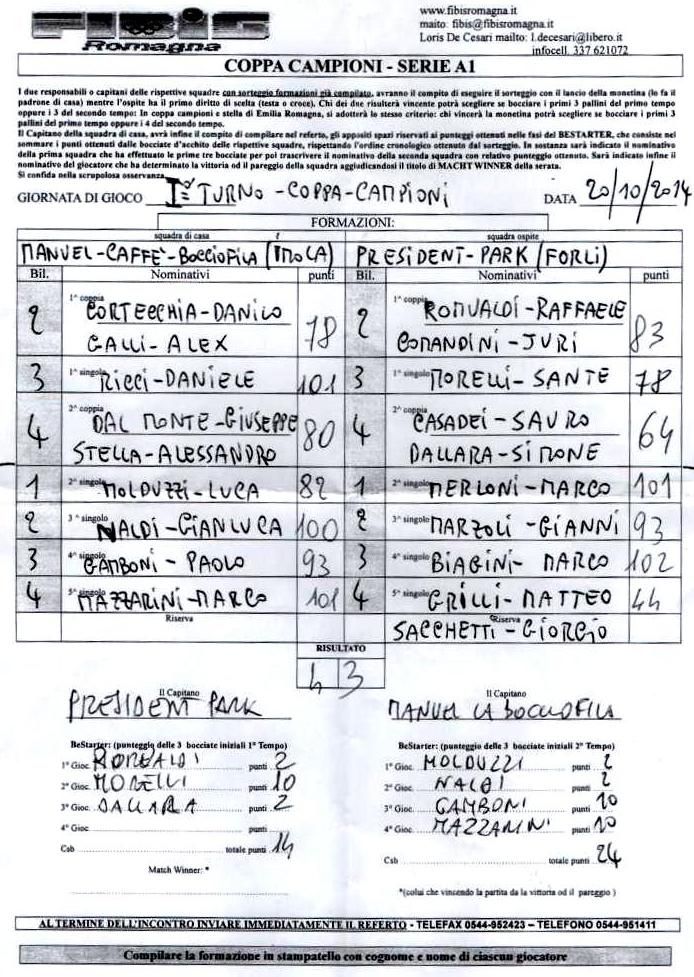 FIBIS
Romagna
www.fibisromagna.it
maito: fibis@fibisromagna.it
Loris De Cesari mailto: l.decesari@libero.it
infocell. 337 621072
COPPA CAMPIONI - SERIE A1
I due responsabili o capitani delle rispettive squadre con sorteggio formazioni già compilato, avranno il compito di eseguire il sorteggio con il lancio della monetina (lo fa il
padrone di casa) mentre l'ospite ha il primo diritto di scelta (testa o croce). Chi dei due risulterà vincente potrà scegliere se bocciare i primi 3 pallini del primo tempo
oppure i 3 del secondo tempo: In coppa campioni e stella di Emilia Romagna, si adotterà lo stesso criterio: chi vincerà la monetina potrà scegliere se bocciare i primi 3
pallini del primo tempo oppure i 4 del secondo tempo.
Il Capitano della squadra di casa, avrà infine il compito di compilare nel referto, gli appositi spazi riservati ai punteggi ottenuti nelle fasi del BESTARTER, che consiste nel
sommare i punti ottenuti dalle bocciate d'acchito delle rispettive squadre, rispettando l'ordine cronologico ottenuto dal sorteggio. In sostanza sarà indicato il nominativo
della prima squadra che ha effettuato le prime tre bocciate per poi trascrivere il nominativo della seconda squadra con relativo punteggio ottenuto. Sarà indicato infine il
nominativo del giocatore che ha determinato la vittoria od il pareggio della squadra aggiudicandosi il titolo di MACHT WINNER della serata.
Si confida nella scrupolosa osservanza
GIORNATA DI GIOCO I° TURNO - COPPA - CAMPIONI DATA 20/10/2014
FORMAZIONI:
squadra di casa squadra ospite
MANUEL-CAFFÈ-BOCCIOFILA (IMOLA) PRESIDENT-PARK (FORLI)
Bil. Nominativi punti Bil. Nominativi punti
2 1^ coppia CORTECCHIA-DANILO 78 2 1^ coppia ROMUALDI-RAFFAELE 83
GALLI-ALEX COMANDINI-JURI
3 1^ singolo RICCI-DANIELE 101 3 1^ singolo MORELLI-SANTE 78
4 2^ coppia DAL MONTE-GIUSEPPE 80 4 2^ coppia CASADEI-SAURO 64
STELLA-ALESSANDRO DALLARA-SIMONE
1 2^ singolo MOLDUZZI-LUCA 82 1 2^ singolo MERLONI-MARCO 101
2 3^ singolo NALDI-GIANLUCA 100 2 3^ singolo MARZOLI-GIANNI 93
3 4^ singolo GAMBONI-PAOLO 93 3 4^ singolo BIAGINI-MARCO 102
4 5^ singolo MAZZARINI-MARCO 101 4 5^ singolo GRILLI-MATTEO 44
Riserva Riserva SACCHETTI-GIORGIO
RISULTATO
4 3
Il Capitano Il Capitano
PRESIDENT PARK MANUEL LA BOCCIOFILA
BeStarter: (punteggio delle 3 bocciate iniziali 1° Tempo) BeStarter: (punteggio delle 3 bocciate iniziali 2° Tempo)
1° Gioc. ROMUALDI punti 2 1° Gioc. MOLDUZZI punti 2
2° Gioc. MORELLI punti 10 2° Gioc. NALDI punti 2
3° Gioc. DALLARA punti 2 3° Gioc. GAMBONI punti 10
4° Gioc. punti 4° Gioc. MAZZARINI punti 10
Csb totale punti 14 Csb totale punti 24
Match Winner: *
*(colui che vincendo la partita da la vittoria od il pareggio )
AL TERMINE DELL'INCONTRO INVIARE IMMEDIATAMENTE IL REFERTO - TELEFAX 0544-952423 – TELEFONO 0544-951411
Compilare la formazione in stampatello con cognome e nome di ciascun giocatore